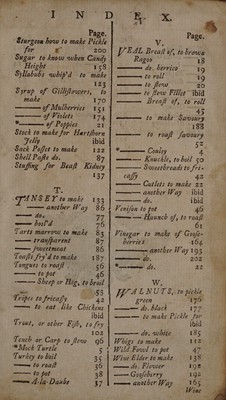 INDEX.
Page.
Sturgeon how to make Pickle
for 200
Sugar to know when Candy
Height 158
Syllabubs whip'd to make
123
Syrup of Gilliflowers, to
make 170
— of Mulberries 151
— of Violets 174
* — of Poppies 21
Stock to make for Hartshorn
Jelly ibid
Sack Posset to make 122
Shell Paste do. 87
Stuffing for Beast Kidney
137
T.
TANSEY to make 133
— another Way 86
— do. 77
— boil'd 76
Tarts marrow to make 83
— transparent 87
— sweetmeat 86
Toasts fry'd to make 187
Tongues to roast 56
— to pot 46
— Sheep or Hog, to broil
ibid
Tripes to fricassy 42
— to eat like Chickens
ibid
Trout, or other Fish, to fry
102
Tench or Carp to stew 96
*Mock Turtle 5
Turkey to boil 35
— to roast 36
— to pot 38
— A-la-Daube 37
Page.
V.
VEAL Breast of, to brown
Ragoo 18
— do. herrico 19
— to roll 19
— to stew 20
— to stew Fillet ibid
— Breast of, to roll
45
— to make Savoury
188
— to roast savoury
52
* — Conley 4
— Knuckle, to boil 50
— Sweetbreads to fri-
cassy 42
— Cutlets to make 22
— another Way ibid
— do. ibid
Venison to pot 46
— Haunch of, to roast
61
Vinegar to make of Goose-
berries 164
— another Way 193
— do. 202
* — do. 22
W.
WALNUTS, to pickle
green 176
— do. black 177
— to make Pickle for
ibid
— do. white 185
Whigs to make 112
Wild Fowl to pot 47
Wine Elder to make 138
— do. Flower 192
— Gooseberry 192
— another Way 165
Wine